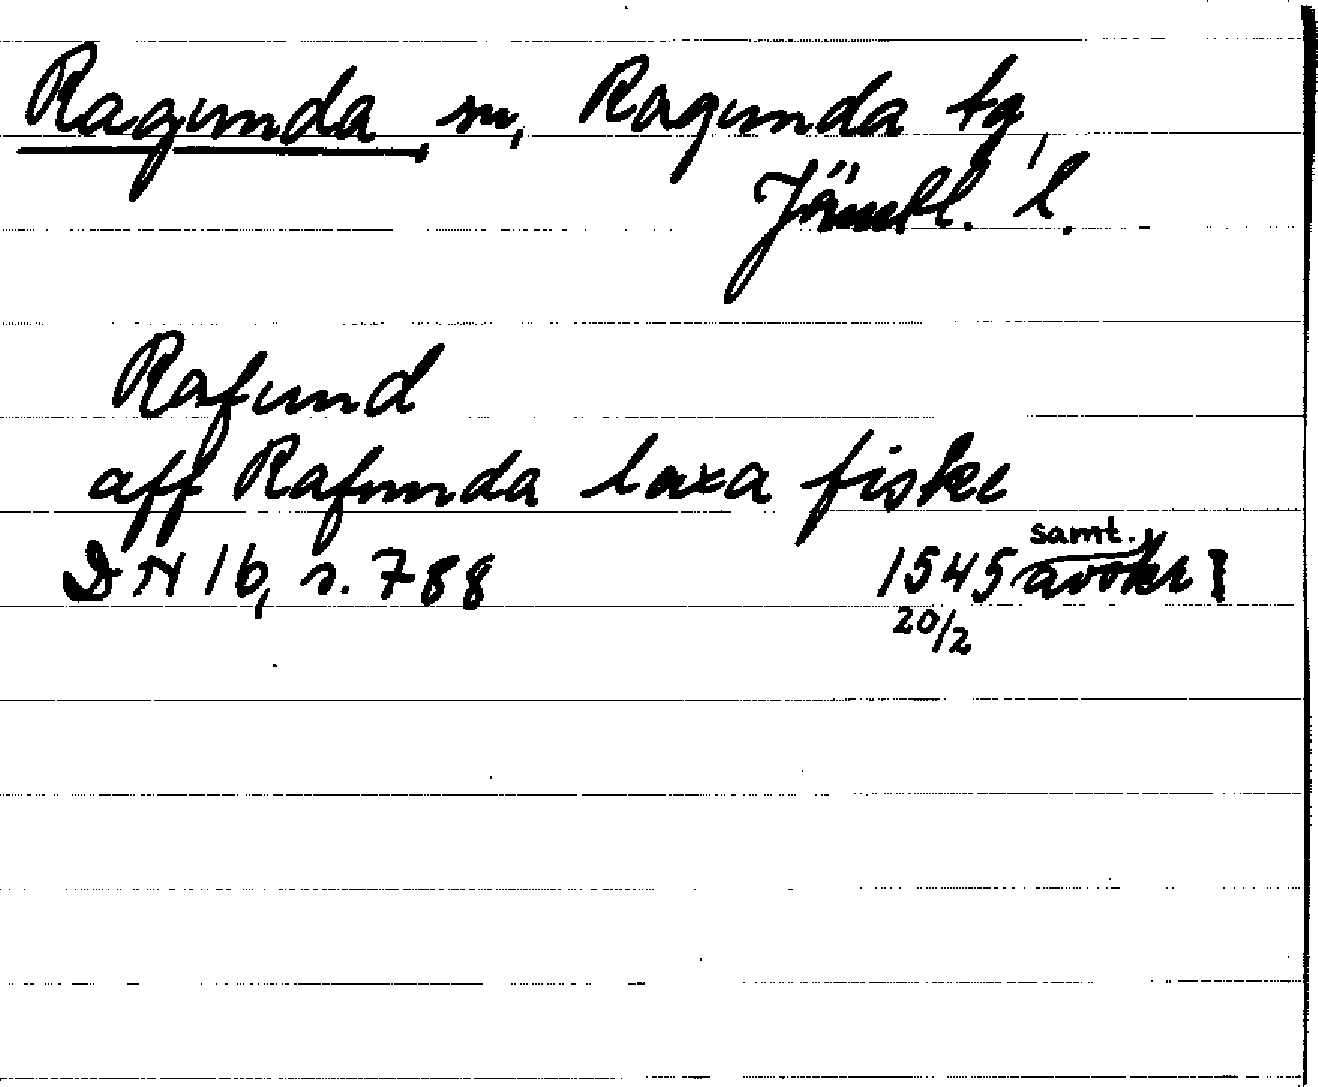 Ragunda sn, Ragunda tg,
Jämtl. l.
Rafund
aff Rafunda laxa fiske
samt.
DN 16, s. 788 1545 avskr
20/2